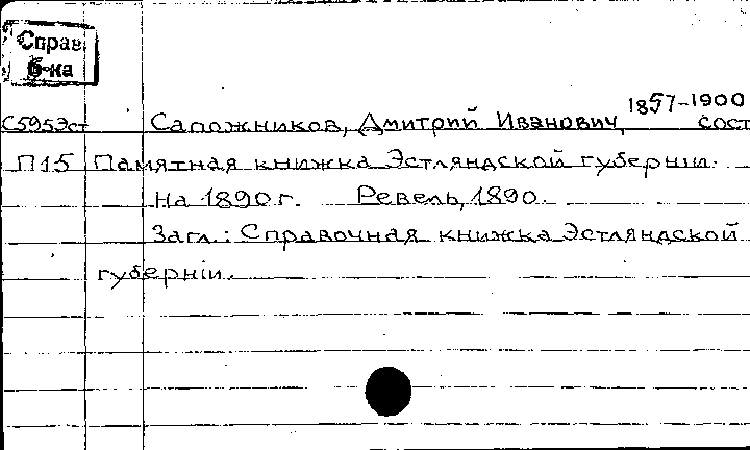 Справ.
б-ка
1857-1900
С595Эст Сапожников, Дмитрий Иванович, сост
П15 Памятная книжка Эстляндской губернiи.
на 1890 г. Ревель, 1890.
Загл.: Справочная книжка Эстляндской
губернiи.